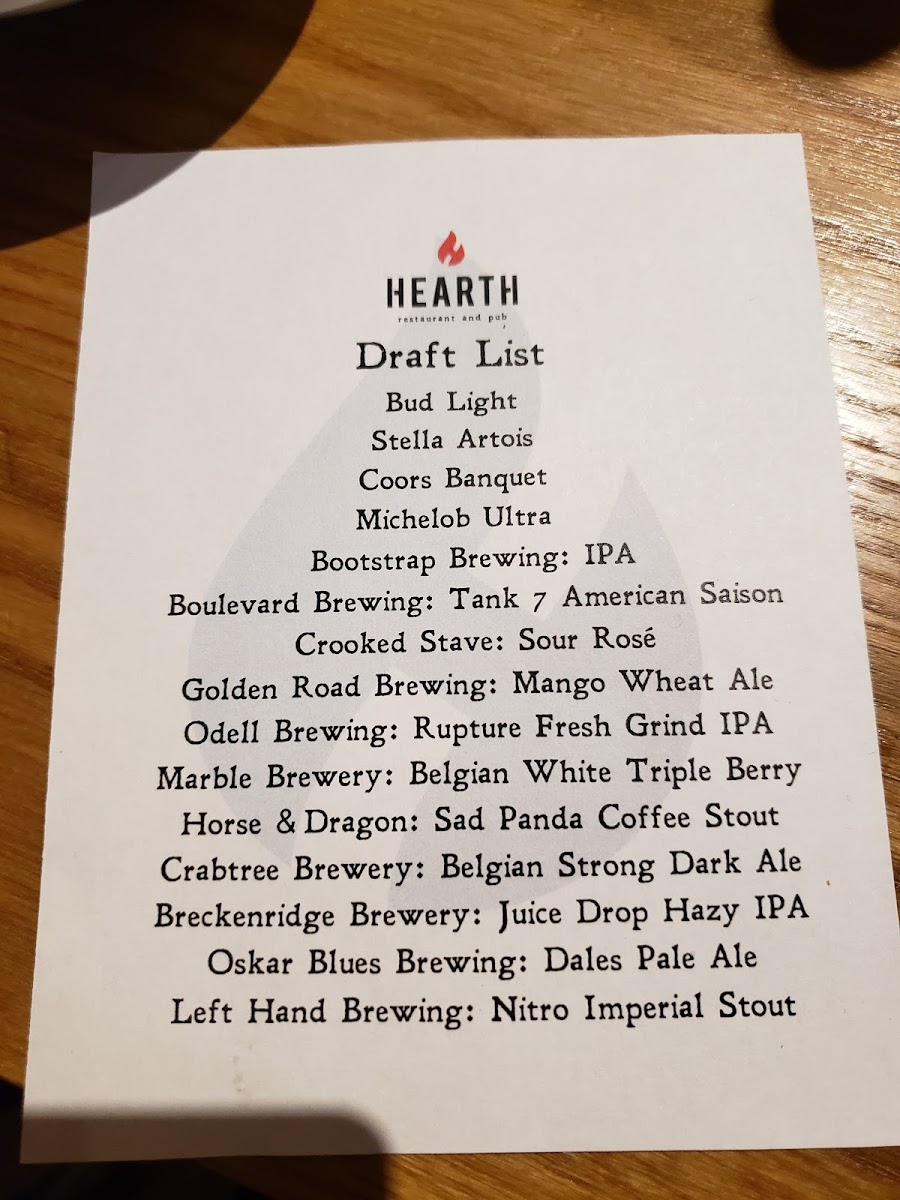 HEARTH
restaurant and pub
Draft List
Bud Light
Stella Artois
Coors Banquet
Michelob Ultra
Bootstrap Brewing: IPA
Boulevard Brewing: Tank 7 American Saison
Crooked Stave: Sour Rosé
Golden Road Brewing: Mango Wheat Ale
Odell Brewing: Rupture Fresh Grind IPA
Marble Brewery: Belgian White Triple Berry
Horse & Dragon: Sad Panda Coffee Stout
Crabtree Brewery: Belgian Strong Dark Ale
Breckenridge Brewery: Juice Drop Hazy IPA
Oskar Blues Brewing: Dales Pale Ale
Left Hand Brewing: Nitro Imperial Stout